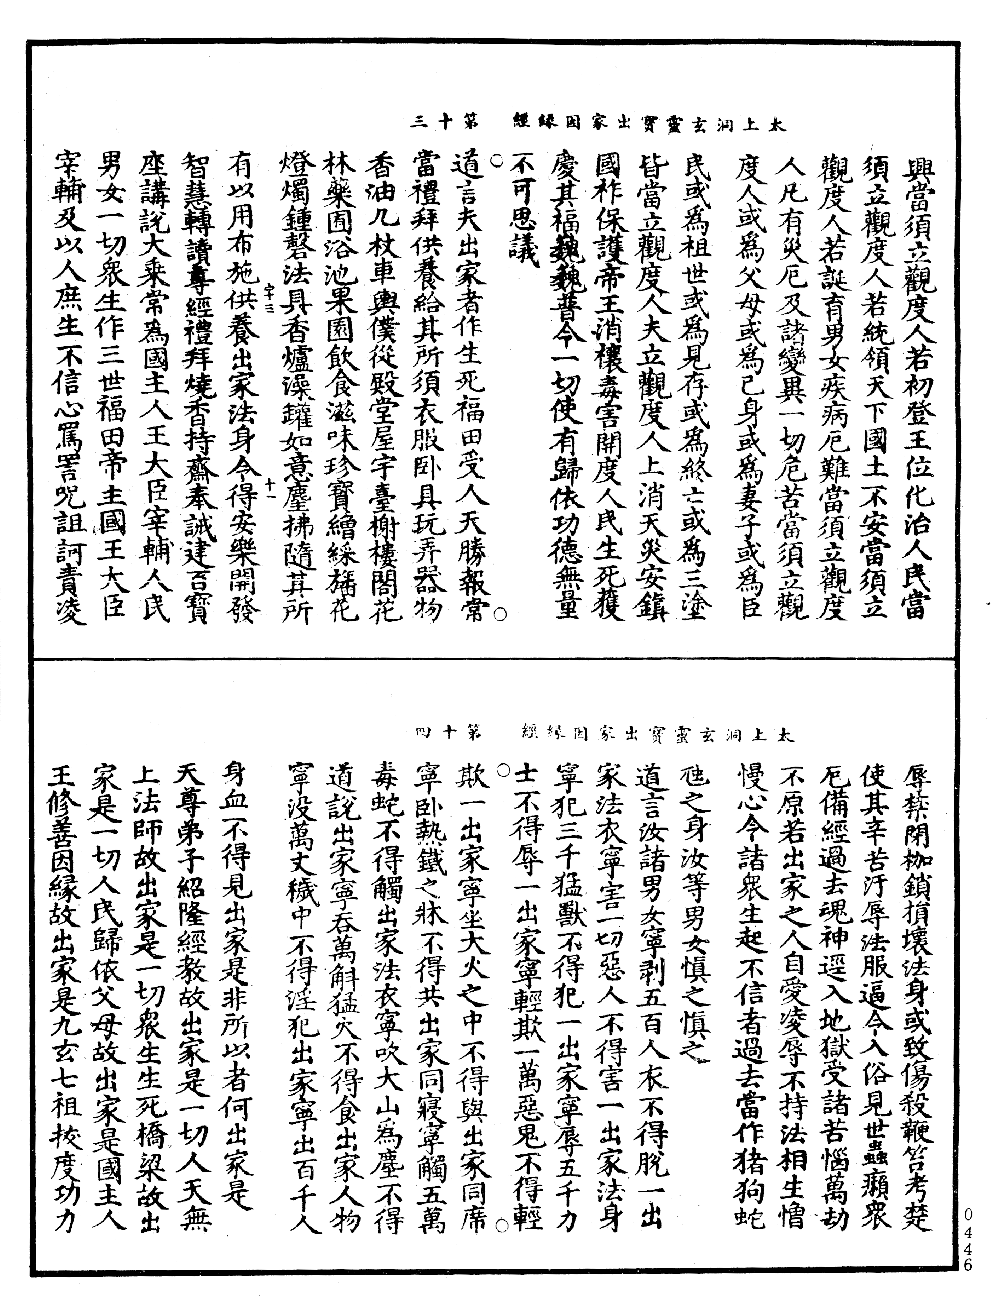 太上洞玄靈寶出家因緣經　第十三
興當須立觀度人若初登王位化治人民當
須立觀度人若統領天下國土不安當須立
觀度人若誕育男女疾病厄難當須立觀度
人凡有災厄及諸變異一切危苦當須立觀
度人或爲父母或爲己身或爲妻子或爲臣
民或爲祖世或爲見存或爲終亡或爲三塗
皆當立觀度人夫立觀度人上消天災安鎮
國祚保護帝王消禳毒害開度人民生死獲
慶其福巍巍普令一切使有歸依功德無量
不可思議
道言夫出家者作生死福田受人天勝報常
當禮拜供養給其所須衣服卧具玩弄器物
香油几杖車輿僕從殿堂屋宇臺榭樓閣花
林藥園浴池果園飲食滋味珍寶繒綵旛花
燈燭鍾磬法具香爐澡鑵如意塵拂隨其所
字三　十一
有以用布施供養出家法身令得安樂開發
智慧轉讀尊經禮拜燒香持齋奉誡建吾寶
座講說大乘常爲國主人王大臣宰輔人民
男女一切衆生作三世福田帝主國王大臣
宰輔及以人庶生不信心罵詈呪詛訶責凌
太上洞玄靈寶出家因緣經　第十四
辱禁閉枷鎖損壞法身或致傷殺鞭笞考楚
使其辛苦汙辱法服逼令入俗見世蟲癩衆
厄備經過去魂神逕入地獄受諸苦惱萬劫
不原若出家之人自愛凌辱不持法相生憎
慢心令諸衆生起不信者過去當作猪狗蛇
虺之身汝等男女慎之慎之
道言汝諸男女寧剥五百人衣不得脫一出
家法衣寧害一切惡人不得害一出家法身
寧犯三千猛獸不得犯一出家寧辱五千力
士不得辱一出家寧輕欺一萬惡鬼不得輕
欺一出家寧坐大火之中不得與出家同席
寧卧熱鐵之牀不得共出家同寢寧觸五萬
毒蛇不得觸出家法衣寧吹大山爲塵不得
道說出家寧吞萬斛猛火不得食出家人物
寧没萬丈穢中不得淫犯出家寧出百千人
身血不得見出家是非所以者何出家是
天尊弟子紹隆經教故出家是一切人天無
上法師故出家是一切衆生生死橋梁故出
家是一切人民歸依父母故出家是國主人
王修善因緣故出家是九玄七祖拔度功力
0446